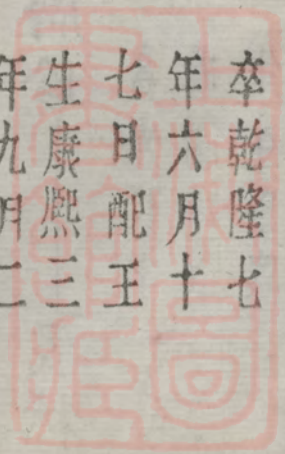 卒乾隆七
年六月十
七日配王
生康熙三
年九月二